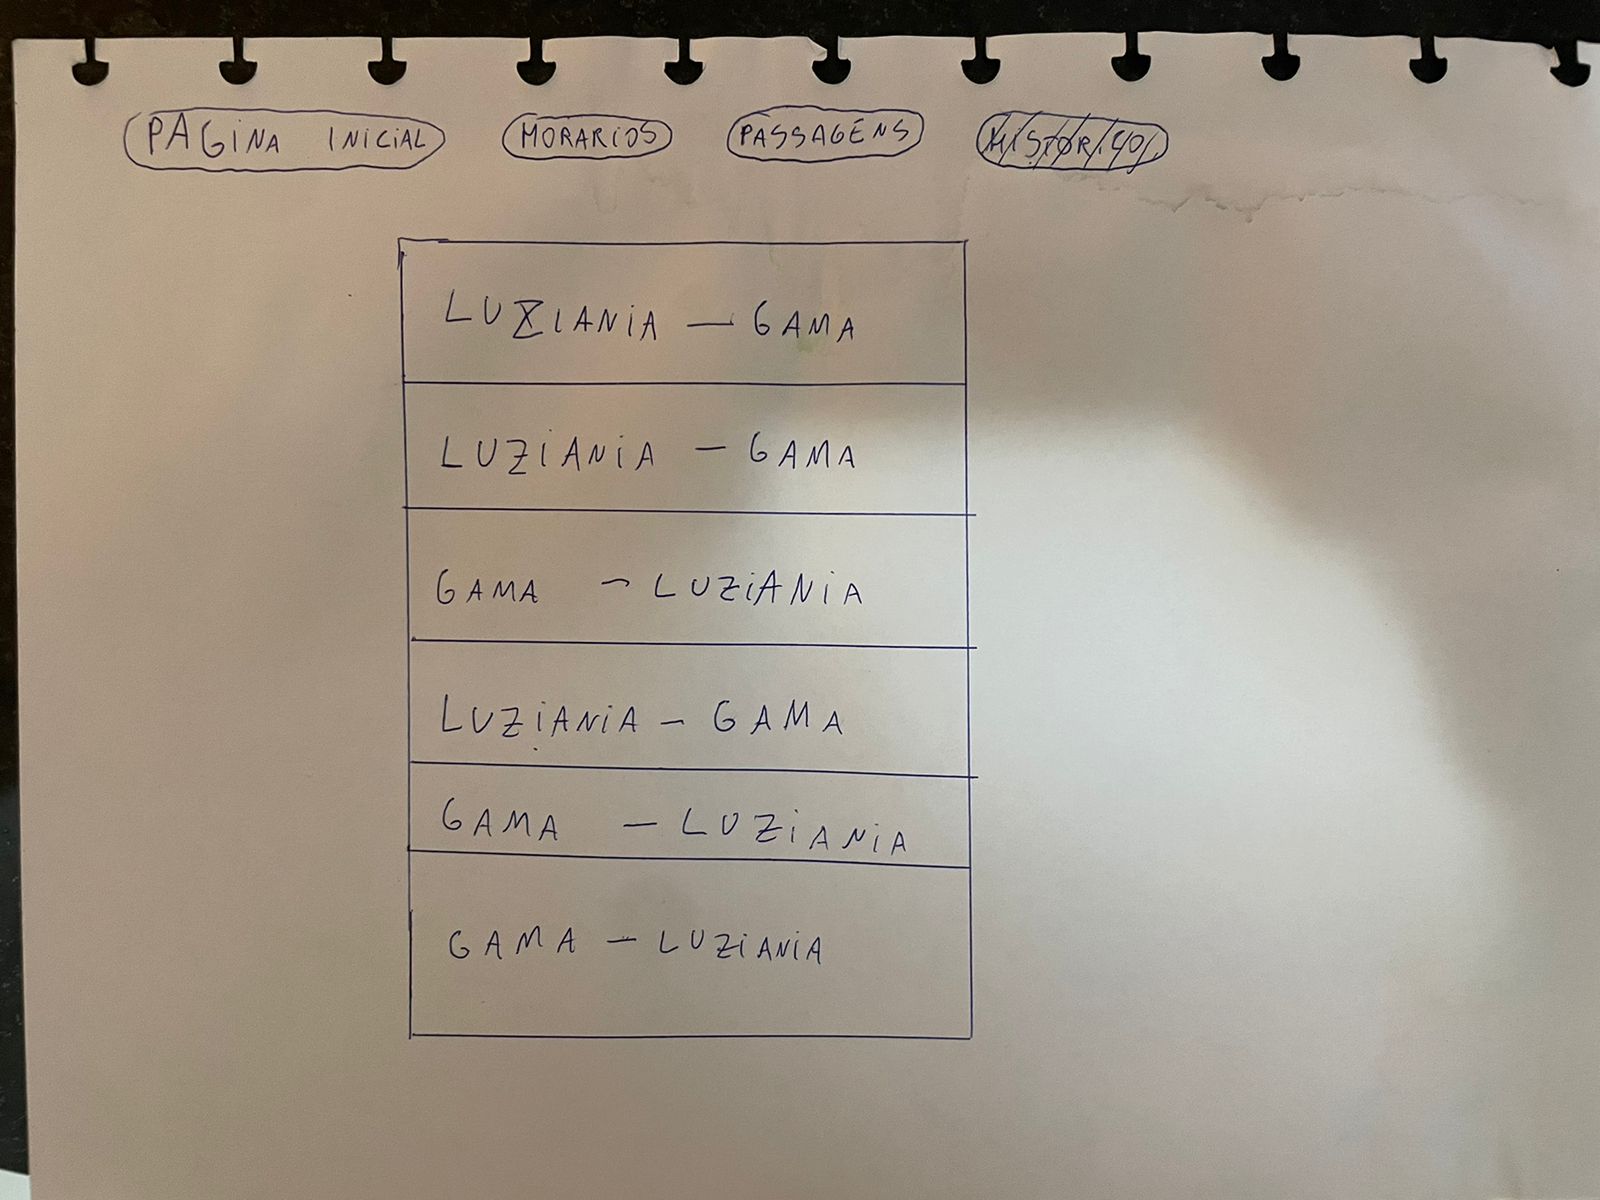 PAGINA INICIAL HORARIOS PASSAGÉNS HISTÓRICO
LUZIANIA — GAMA
LUZIANIA — GAMA
GAMA — LUZIANIA
LUZIANIA — GAMA
GAMA — LUZIANIA
GAMA — LUZIANIA